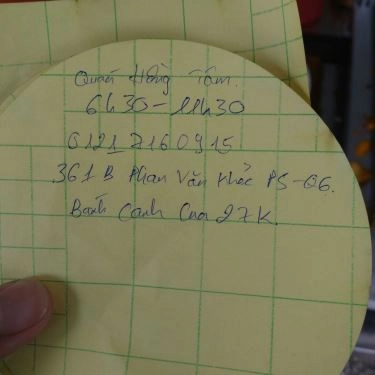 Quán Hồng Tâm.
6h30-11h30
01217160915
361B Phan Văn Khỏe P5-Q6.
Bánh Canh Cua 27K.